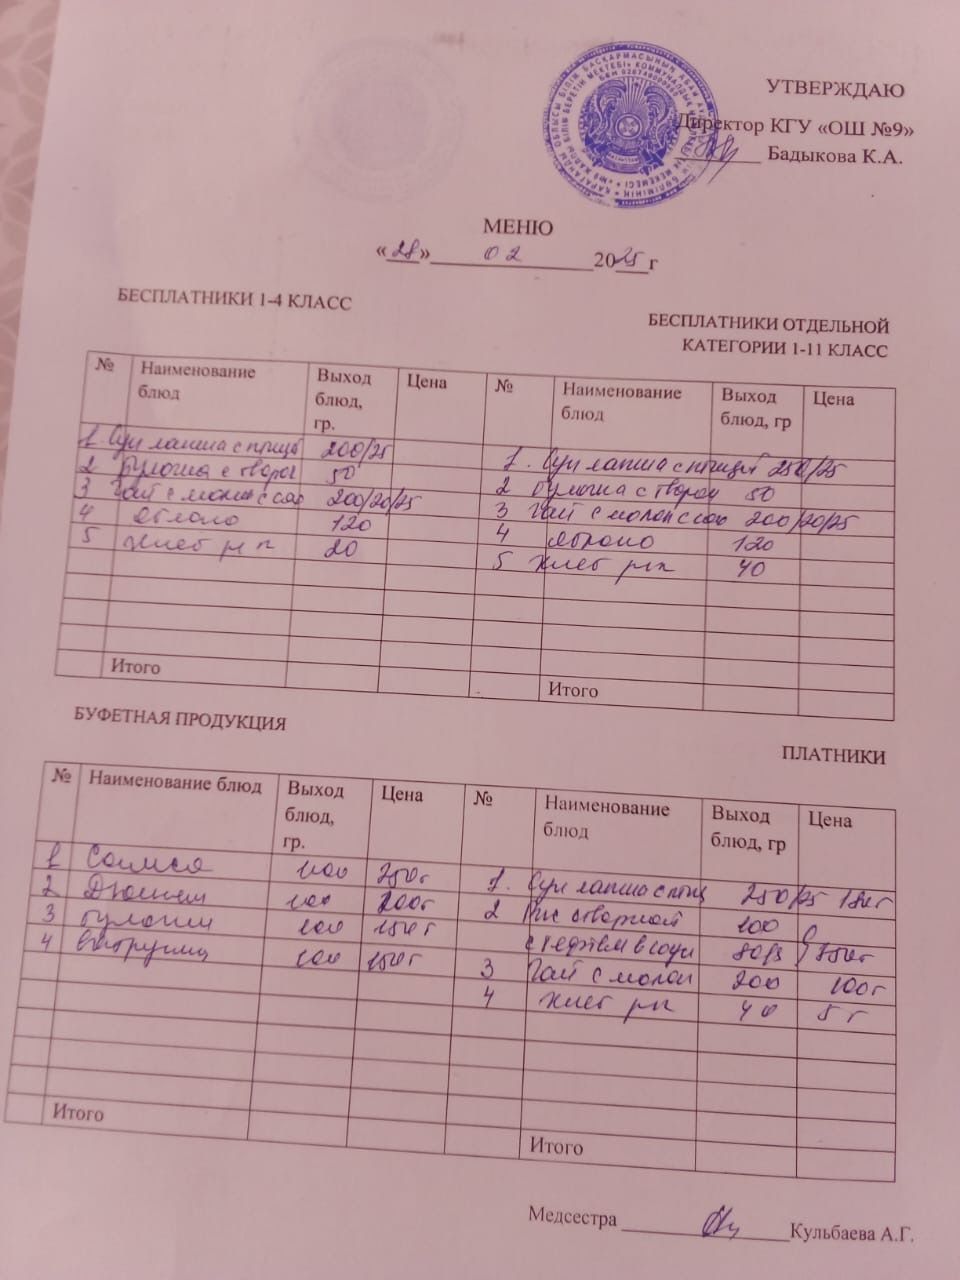 УТВЕРЖДАЮ
Директор КГУ «ОШ №9»
Бадыкова К.А.
МЕНЮ
«28» 02 2025 г
БЕСПЛАТНИКИ 1-4 КЛАСС
БЕСПЛАТНИКИ ОТДЕЛЬНОЙ
КАТЕГОРИИ 1-11 КЛАСС
№ Наименование блюд Выход блюд, гр. Цена № Наименование блюд Выход блюд, гр Цена
1 Суп лапша с птицей 200/25
2 Булочка с творог 50
3 Чай с молок с сах 200/20/25
4 яблоко 120
5 хлеб рж п 20
1. Суп лапша с птицей 250/25
2 Булочка с творог 50
3 Чай с молок с сах 200/20/25
4 яблоко 120
5 хлеб рж п 40
Итого
Итого
БУФЕТНАЯ ПРОДУКЦИЯ
ПЛАТНИКИ
№ Наименование блюд Выход блюд, гр. Цена № Наименование блюд Выход блюд, гр Цена
1 Самса 100 250т
2 100 200т
3 булочки 100 150т
4 100 150т
1. Суп лапша с птиц 250/25
2 Рис отварной 100
с тефтел в соусе
3 Чай с молок 200 100т
4 хлеб рж п 40 5т
Итого
Итого
Медсестра Кульбаева А.Г.